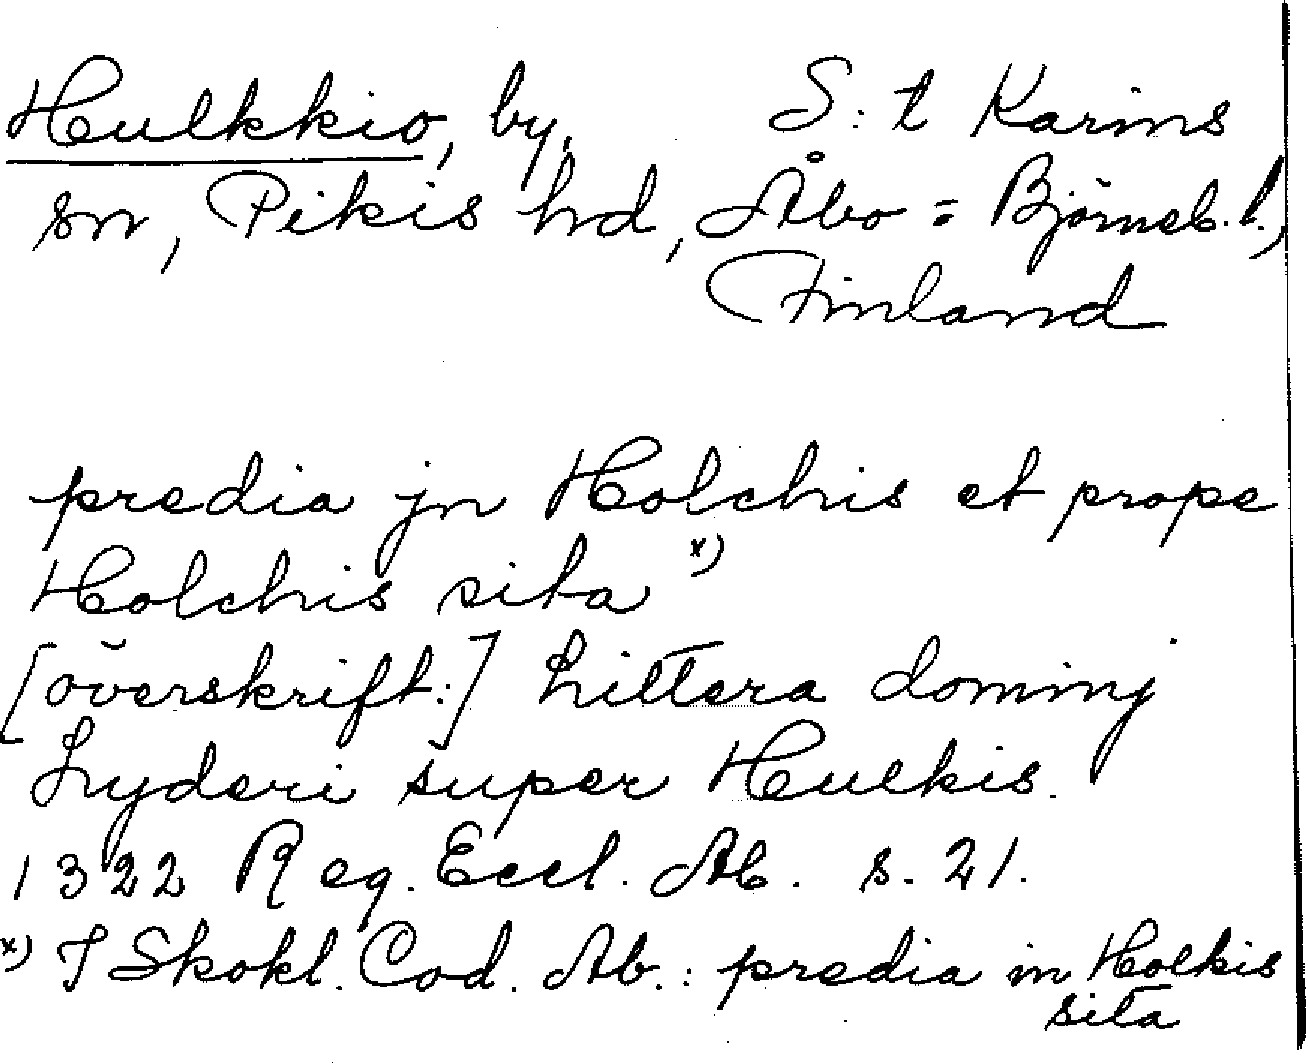 Hulkkio, by, S:t Karins
sn, Pikis hd, Åbo=Björneb. l.,
Finland
predia jn Holchis et prope
Holchis sita x)
[överskrift:] Littera dominj
Lyderi super Hulkis.
1322 Reg. Eccl. Ab. s. 21.
x) I Skokl. Cod. Ab.: predia in Holkis
sita